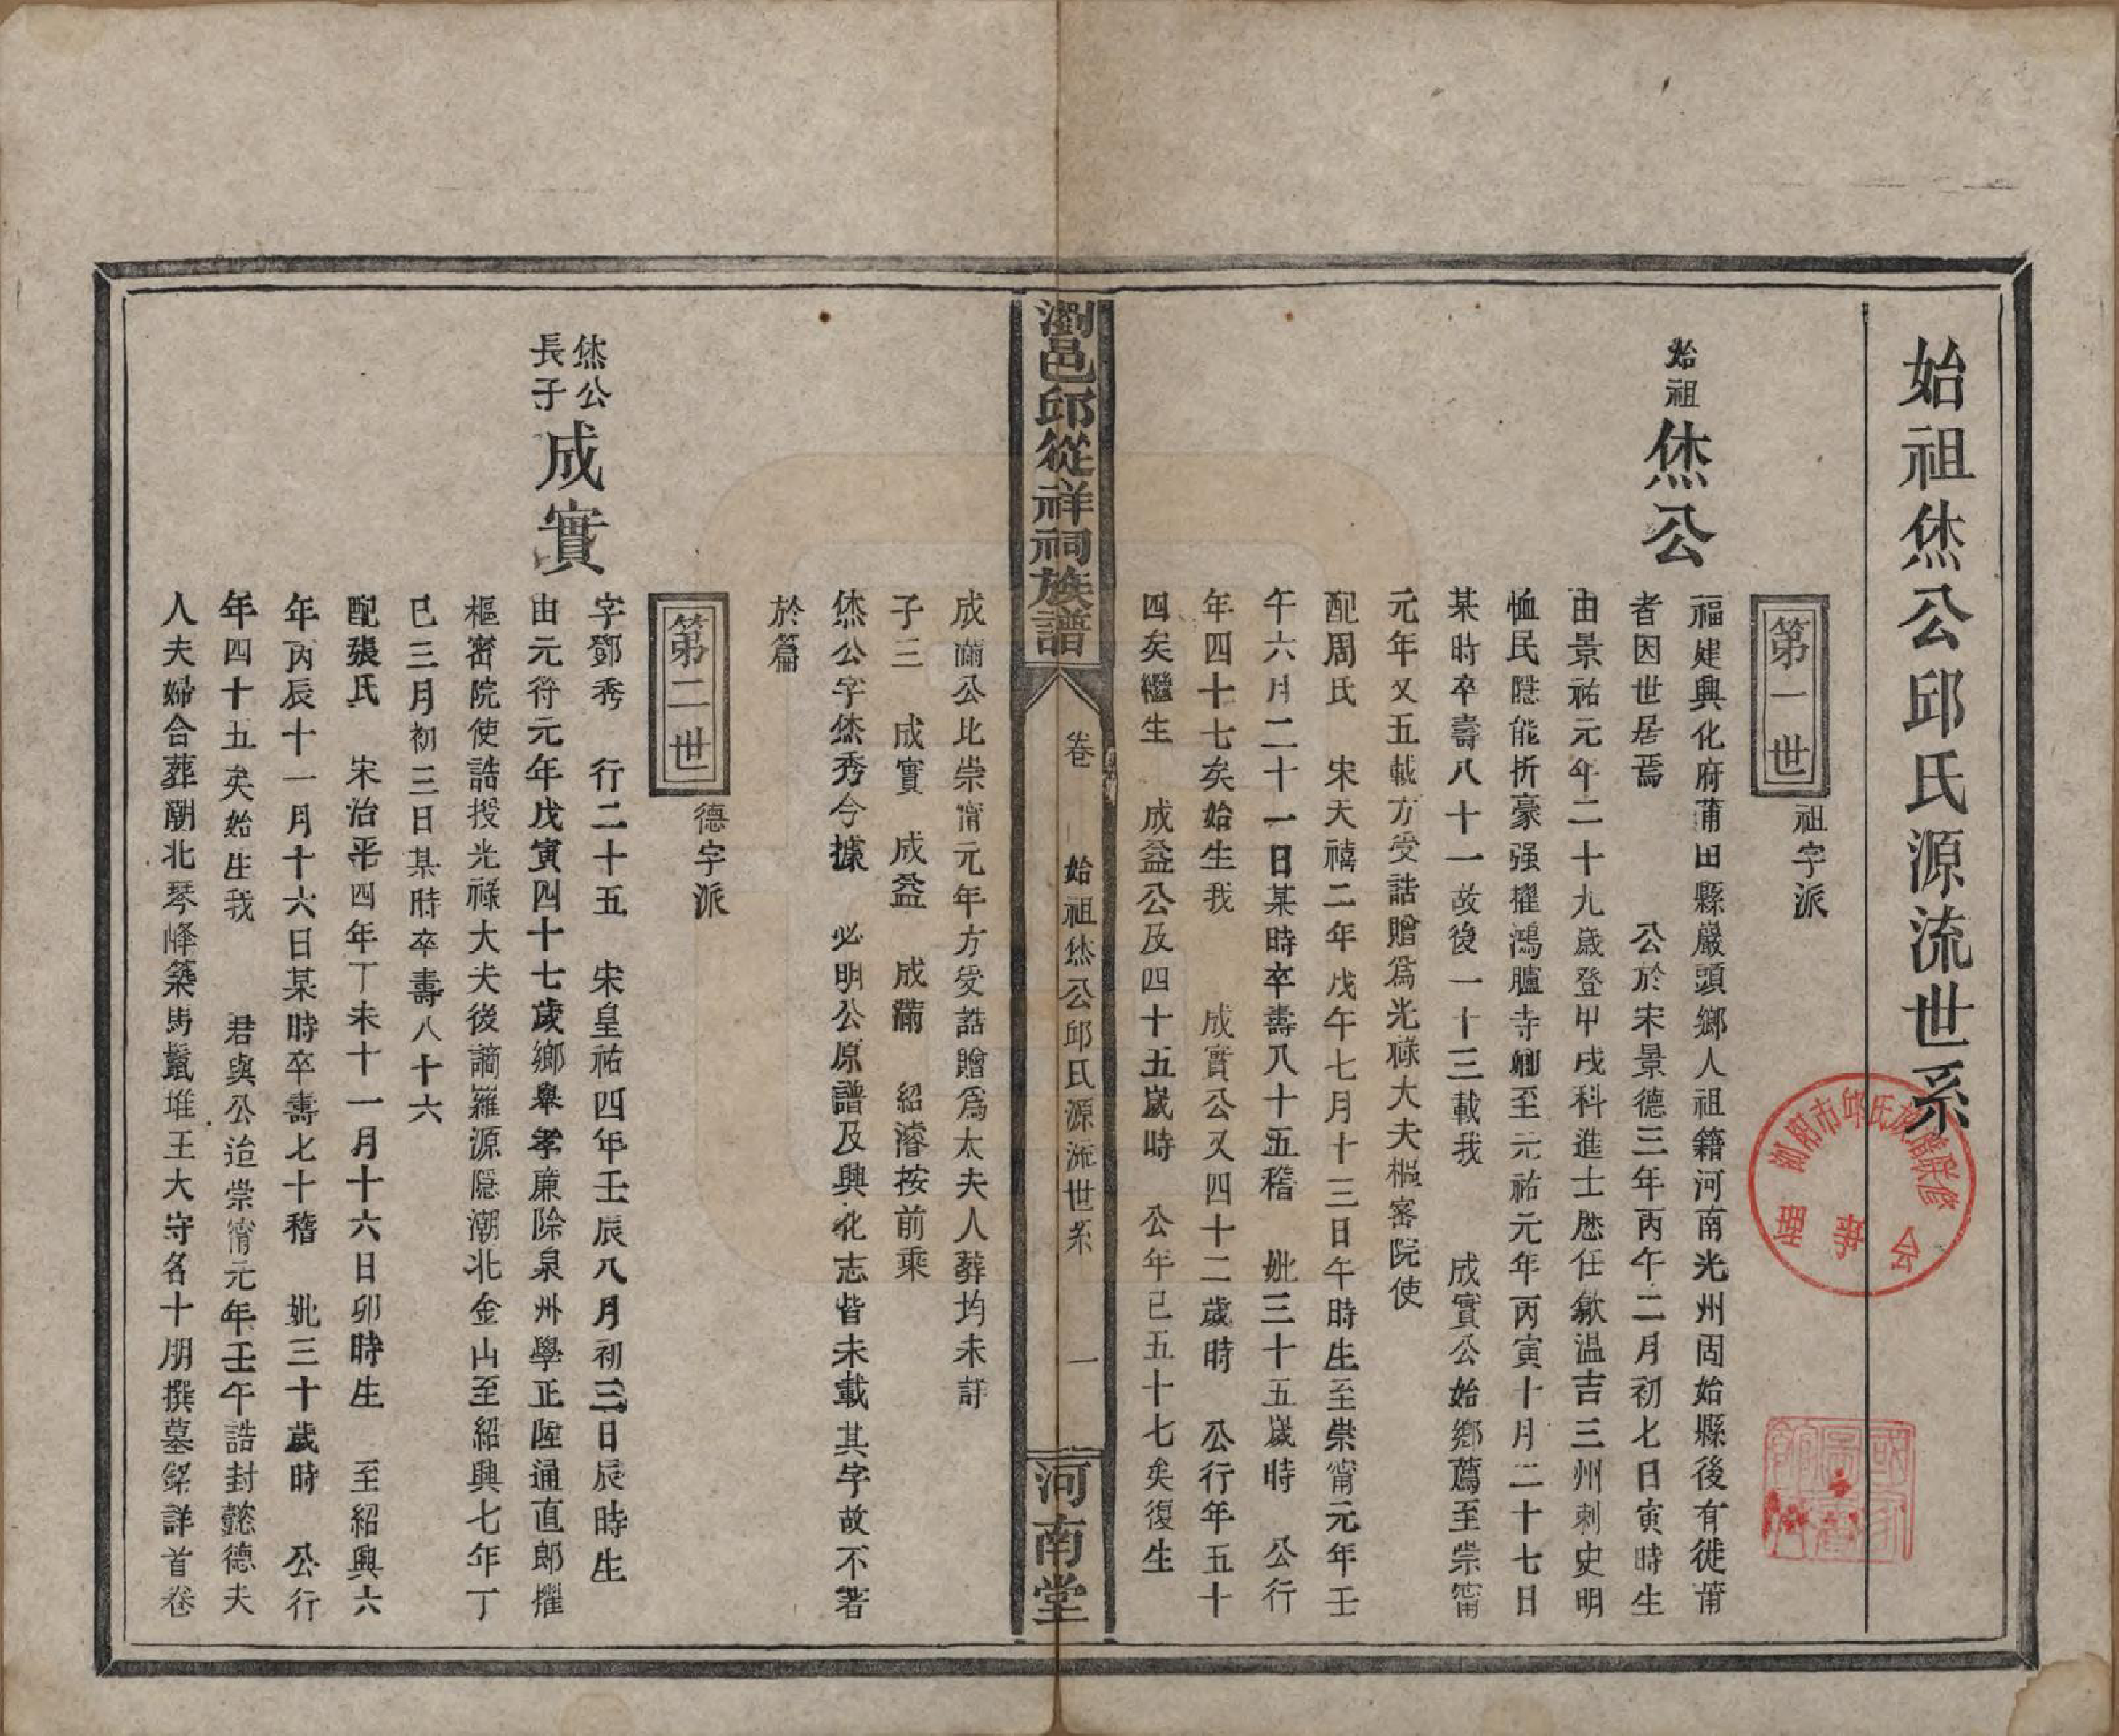 始祖烋公邱氏源流世系
第一世 祖字派
始祖烋公
福建興化府莆田縣巖頭鄉人祖籍河南光州固始縣後有徙莆
者因世居焉 公於宋景德三年丙午二月初七日寅時生
由景祐元年二十九歲登甲戌科進士歷任歙溫吉三州刺史明
恤民隱能折豪强擢鴻臚寺卿至元祐元年丙寅十月二十七日
某時卒壽八十一故後一十三載我 成實公始鄉薦至崇甯
元年又五載方受誥贈爲光祿大夫樞密院使
配周氏 宋天禧二年戊午七月十三日午時生至崇甯元年壬
午六月二十一日某時卒壽八十五稽 妣三十五歲時 公行
年四十七矣始生我 成實公又四十二歲時 公行年五十
四矣繼生 成益公及四十五歲時 公年已五十七矣復生
瀏邑邱從祥祠族譜
卷 始祖烋公邱氏源流世系 一
河南堂
成滿公比崇甯元年方受誥贈爲太夫人葬均未詳
子三 成實 成益 成滿 紹濬按前乘
烋公字烋秀今據 必明公原譜及興化志皆未載其字故不著
於篇
第二世 德字派
烋公長子成實
字鄧秀 行二十五 宋皇祐四年壬辰八月初三日辰時生
由元符元年戊寅四十七歲鄉舉孝廉除泉州學正陞通直郎擢
樞密院使誥授光祿大夫後謫羅源隱潮北金山至紹興七年丁
巳三月初三日某時卒壽八十六
配張氏 宋治平四年丁未十一月十六日卯時生 至紹興六
年丙辰十一月十六日某時卒壽七十稽 妣三十歲時 公行
年四十五矣始生我 君與公迨崇甯元年壬午誥封懿德夫
人夫婦合葬潮北琴峰築馬鬛堆王大守名十朋撰墓銘詳首卷
瀏阳市邱氏族譜联修
理事会